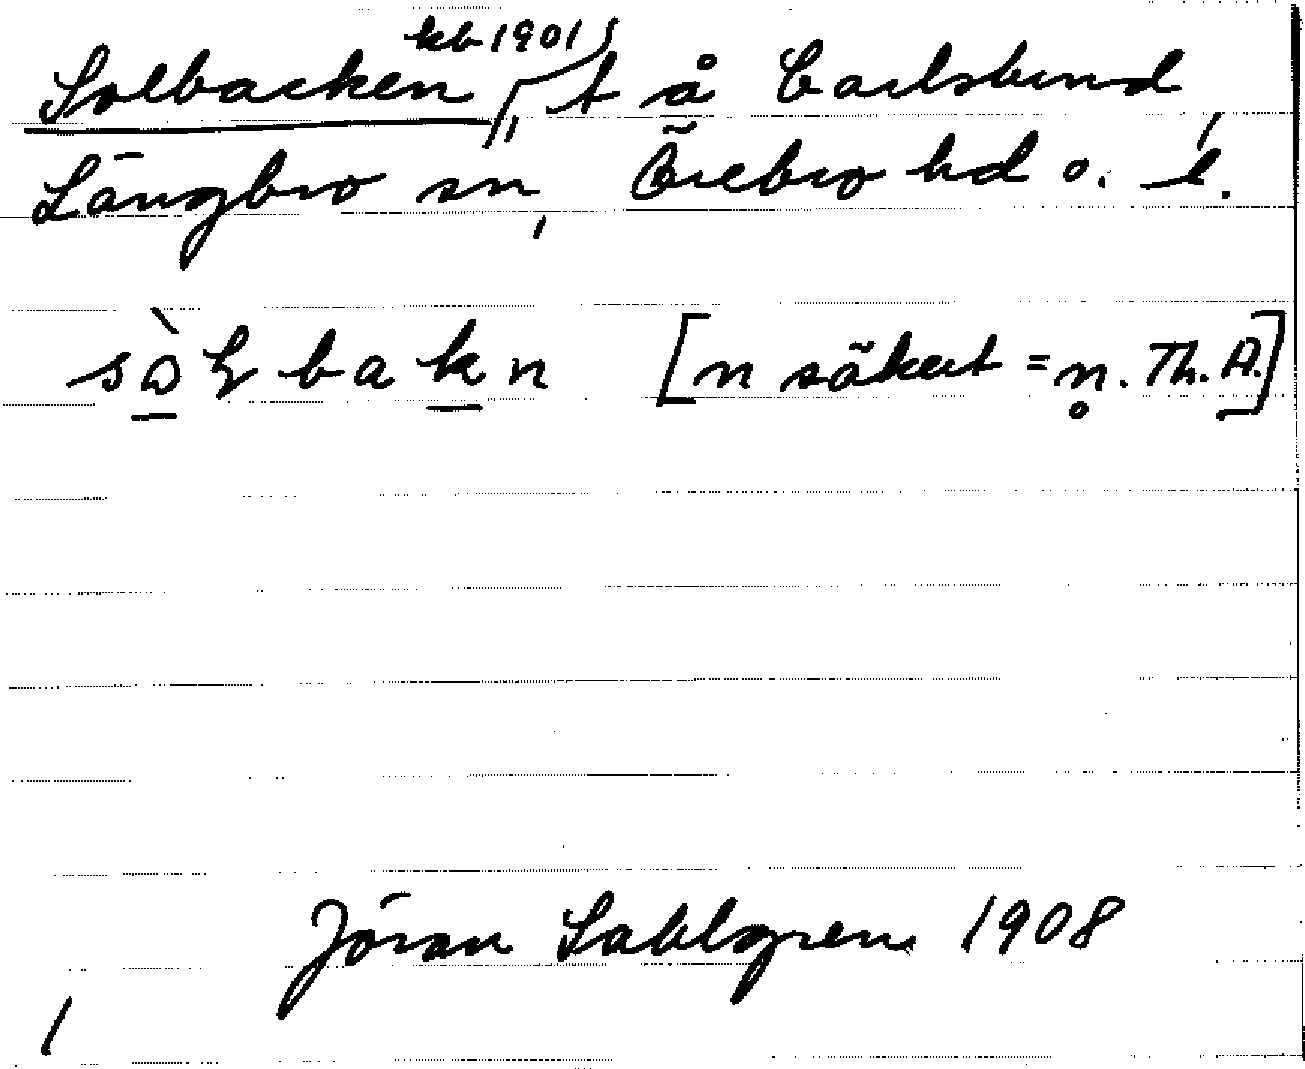 kb 1901
Solbacken, t å Carlslund,
Längbro sn, Örebro hd o. l.
sɷ̀ɽbakn [n säkert = n̥. Th. A.]
Jöran Sahlgren 1908
/